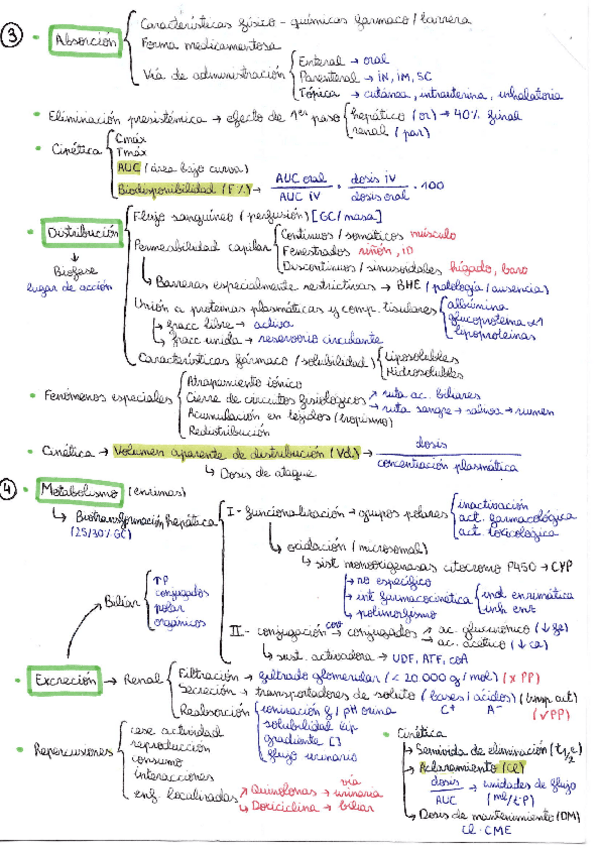 ③ • Absorción
Características físico-químicas fármaco / barrera
Forma medicamentosa
Vía de administración
Enteral → oral
Parenteral → iN, iM, SC
Tópica → cutánea, intrauterina, inhalatoria
• Eliminación presistémica → efecto de 1er paso
hepático (or) → 40% final
renal (par)
• Cinética
Cmáx
Tmáx
AUC (área bajo curva)
Biodisponibilidad (F%) → AUC oral / AUC iV · dosis iV / dosis oral · 100
• Distribución
↓
Biofase
lugar de acción
Flujo sanguíneo (perfusión) [GC/masa]
Permeabilidad capilar
Continuos / somáticos músculo
Fenestrados riñón, ID
Discontinuos / sinusoidales hígado, bazo
↳ Barreras especialmente restrictivas → BHE (patología / ausencia)
Unión a proteínas plasmáticas y comp. tisulares
albúmina
glucoproteína α1
lipoproteínas
↳ fracc libre → activa
↳ fracc unida → reservorio circulante
Características fármaco (solubilidad)
Liposolubles
Hidrosolubles
• Fenómenos especiales
Atrapamiento iónico
Cierre de circuitos fisiológicos
↗ ruta ac. biliares
→ ruta sangre → saliva → rumen
Acumulación en tejidos (tropismo)
Redistribución
• Cinética → Volumen aparente de distribución (Vd) → dosis / concentración plasmática
↳ Dosis de ataque
④ • Metabolismo (enzimas)
↳ Biotransformación hepática
(25/30% GC)
I - funcionalización → grupos polares
inactivación
act. farmacológica
act. toxicológica
↳ oxidación (microsomal)
↳ sist monooxigenasas citocromo P450 → CYP
→ no específico
→ int farmacocinética
ind enzimática
inh enz
↳ polimorfismo
II - conjugación → conjugados
↗ ac. glucurónico
→ ac. acético
↳ sust. activadora → UDF, ATF, coA
Biliar
↑P
conjugados
polar
orgánicos
• Excreción → Renal
Filtración → filtrado glomerular (< 20 000 g/mol) (x PP)
Secreción → transportadores de soluto (bases / ácidos) (transp act)
C+ A- (✓PP)
Reabsorción
ionización f / pH orina
solubilidad lip
gradiente [ ]
flujo urinario
• Repercusiones
cese actividad
reproducción
consumo
interacciones
enf. localizadas
→ Quinolonas → vía urinaria
→ Doxiciclina → biliar
• Cinética
↳ Semivida de eliminación (t1/2 e)
↳ Aclaramiento (Cl)
dosis / AUC → unidades de flujo (ml/t·P)
↳ Dosis de mantenimiento (DM)
Cl · CME